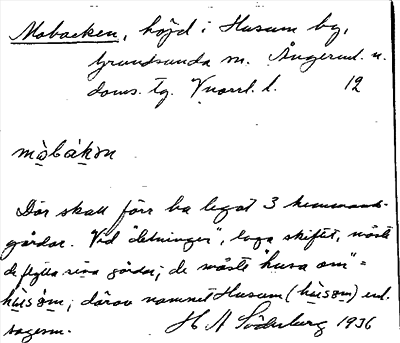 Mobacken, höjd i Husum by,
Grundsunda sn. Ångerml. n.
doms. tg. Vnorrl. l. 12
mòbàkən
Där skall förr ha legat 3 hemmans-
gårdar. Vid "delningen", laga skiftet, måste
de flytta sina gårdar; de måste "husa om" =
hùsóm; därav namnet Husum (hùsəm) enl.
sagesm. H A Söderberg 1936